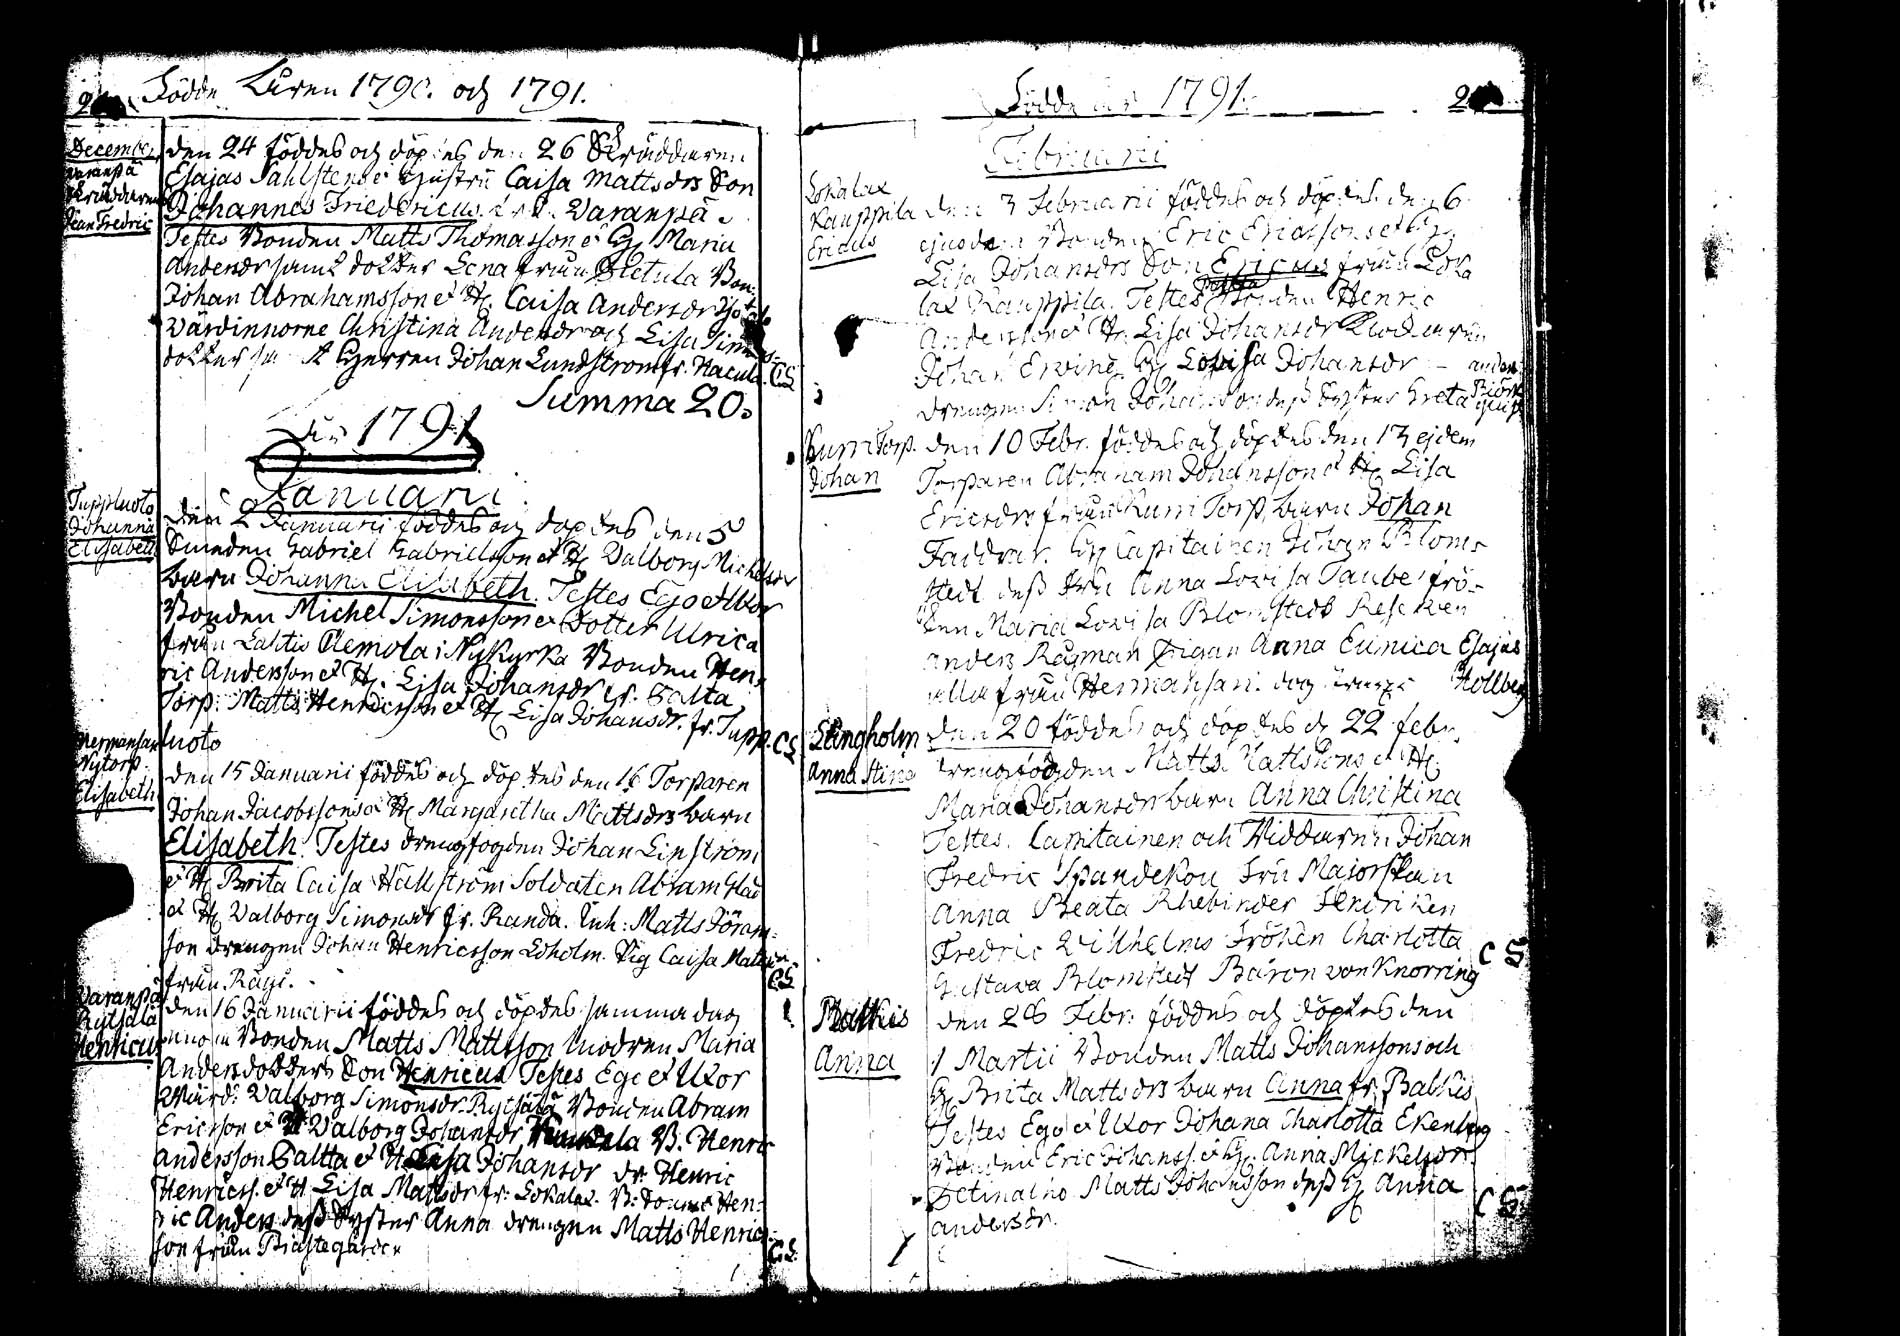 Födde Åren 1790. och 1791.
December
Varanpä
Skräddaren
Jean Fredric
den 24 föddes och döptes den 26 Skräddaren
Esajas Sahlstens et Hustru Caisa Mattsdrs Son
Johannes Friedericus Varanpä.
Testes Bonden Matts Thomasson et Hu Maria
Andersdr samt dotter Lena från Bon:
Johan Abrahamsson et H. Caisa Andersdr
Wärdinnorne Christina Andersdr och Lisa Simons
dotter Herren Johan Lundström fr. Hacula. CS
Summa 20.
År 1791
Januarii
Tuppluoto
Johanna
Elisabeth
den 2 Januarii föddes och döptes den 5
Smeden Gabriel Gabrielsson et H. Valborg Michelsdr
barn Johanna Elisabeth. Testes Ego et Uxor
Bonden Michel Simonsson et Dotter Ulrica
från Lahtis Nemola i Nykyrka Bonden Hen-
ric Andersson et H. Lisa Johansdr fr. Saltta
Torp. Matts Henricsson et H. Lisa Johansdr. fr. Tupp-
luoto CS
Hermansar
Nytorp.
Elisabeth
den 15 Januarii föddes och döptes den 16 Torparen
Johan Jacobssons et H. Margaretha Mattsdrs barn
Elisabeth. Testes drengfogden Johan Linström
et H. Brita Caisa Hällström Soldaten Abram Glad
et H. Valborg Simonsdr fr. Randa. Inh: Matts Jöran-
son drengen Johan Henricsson Loholm. Pig Caisa Mattsdr
från CS
Varanpä
Rytsälä
Henricus
den 16 Januarii föddes och döptes samma dag
Bonden Matts Mattsson modren Maria
Andersdotters Son Henricus Testes Ego et Uxor
Wärd: Valborg Simonsdr. Rytsälä Bonden Abram
Ericsson et H Valborg Johansdr B. Henric
Andersson Saltta et H Lisa Johansdr dr. Henric
Henricss. et H Lisa Mattsdr fr: Lokalax. B: Hen-
ric Anders dess Syster Anna drengen Matts Henrics-
son från CS
Födde år 1791.
Februarii
Lokalax
Kauppila
Ericus
den 3 Februarii föddes och döptes den 6
ejusdem Bonden Eric Ericssons et H.
Lisa Johansdrs Son Ericus från Loka
lax Kauppila. Testes Bonden Henric
Andersson et H. Lisa Johansdr
Johan Erving H. Lovisa Johansdr
drengen Simon Johansson dess Syster Greta
Kurri Torp.
Johan
den 10 Febr. föddes och döptes den 13 ejdem
Torparen Abraham Johansson et H. Lisa
Ericsdrs från Kurri Torp, barn Johan
Faddrar. H. Capitainen Johan Blom-
stedt dess Fru Anna Lovisa Taube frö-
ken Maria Lovisa Blomstedt
Anders Rågman Pigan Anna Eunica Esajas
alla från Hermansari. Hollberg
Stingholm
Anna Stina
den 20 föddes och döptes d. 22 febr.
drengfogden Matts Mattssons et H.
Maria Johansdrs barn Anna Christina
Testes. Capitainen och Riddaren Johan
Fredric Spandekou Fru Majorskan
Anna Beata Rhebinder Fendriken
Fredric Wilhelms Fröken Charlotta CS
Gustava Blomstedt Baron von Knorring
Palkis
Anna
den 28 Febr. föddes och döptes den
1 Martii Bonden Matts Johanssons och
H. Brita Mattsdrs barn Anna fr. Palkis
Testes Ego et Uxor Johana Charlotta Ekenberg
Bonden Eric Johanss. et H. Anna Mickelsdr.
Matts Johansson dess H. Anna CS
andersdr.